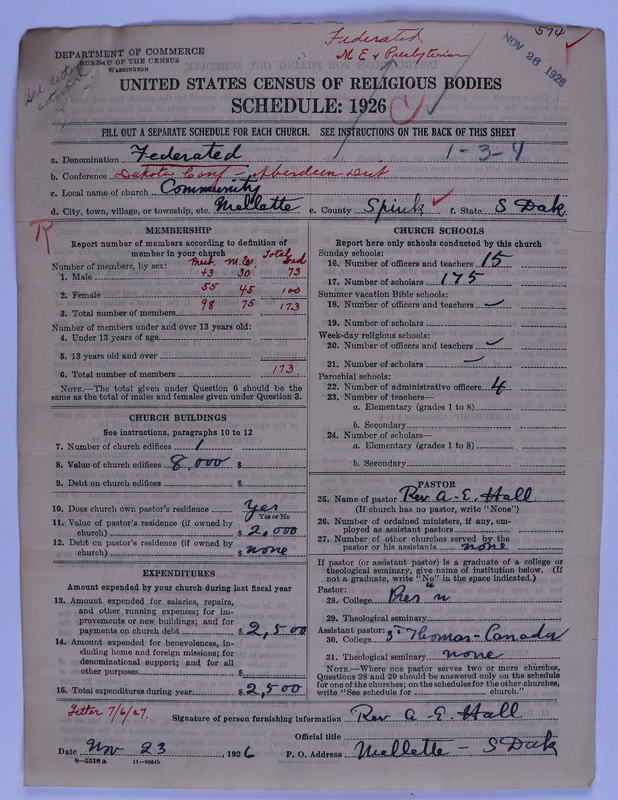 574
DEPARTMENT OF COMMERCE
BUREAU OF THE CENSUS
WASHINGTON
Federated
M E & Presbyterian
NOV 26 1926
UNITED STATES CENSUS OF RELIGIOUS BODIES
SCHEDULE: 1926
FILL OUT A SEPARATE SCHEDULE FOR EACH CHURCH. SEE INSTRUCTIONS ON THE BACK OF THIS SHEET
a. Denomination Federated 1-3-4
b. Conference Dakota Conf - Aberdeen Dist
c. Local name of church Community
d. City, town, village, or township, etc. Mellette e. County Spink f. State S Dak.
R
MEMBERSHIP
Report number of members according to definition of member in your church
Pres. M.E. Total Fed
Number of members, by sex:
1. Male 43 30 73
2. Female 55 45 100
3. Total number of members 98 75 173
Number of members under and over 13 years old:
4. Under 13 years of age
5. 13 years old and over
6. Total number of members 173
NOTE.—The total given under Question 6 should be the same as the total of males and females given under Question 3.
CHURCH BUILDINGS
See instructions, paragraphs 10 to 12
7. Number of church edifices 1
8. Value of church edifices 8,000 $
9. Debt on church edifices $
10. Does church own pastor's residence yes
Yes or No
11. Value of pastor's residence (if owned by church) $ 2,000
12. Debt on pastor's residence (if owned by church) $ none
EXPENDITURES
Amount expended by your church during last fiscal year
13. Amount expended for salaries, repairs, and other running expenses; for improvements or new buildings; and for payments on church debt $ 2,500
14. Amount expended for benevolences, including home and foreign missions; for denominational support; and for all other purposes $
15. Total expenditures during year $ 2,500
CHURCH SCHOOLS
Report here only schools conducted by this church
Sunday schools:
16. Number of officers and teachers 15
17. Number of scholars 175
Summer vacation Bible schools:
18. Number of officers and teachers
19. Number of scholars
Week-day religious schools:
20. Number of officers and teachers
21. Number of scholars
Parochial schools:
22. Number of administrative officers 4
23. Number of teachers—
a. Elementary (grades 1 to 8)
b. Secondary
24. Number of scholars—
a. Elementary (grades 1 to 8)
b. Secondary
PASTOR
25. Name of pastor Rev A. E. Hall
(If church has no pastor, write "None")
26. Number of ordained ministers, if any, employed as assistant pastors
27. Number of other churches served by the pastor or his assistants none
If pastor (or assistant pastor) is a graduate of a college or theological seminary, give name of institution below. (If not a graduate, write "No" in the space indicated.)
Pastor:
28. College
29. Theological seminary
Assistant pastor:
30. College St Thomas-Canada
31. Theological seminary none
NOTE.—Where one pastor serves two or more churches, Questions 28 and 29 should be answered only on the schedule for one of the churches; on the schedules for the other churches, write "See schedule for church."
Letter 7/6/27.
Signature of person furnishing information Rev A. E. Hall
Official title
Date Nov 23, 1926 P. O. Address Mellette - S Dak
8—5518 a 11—9054b